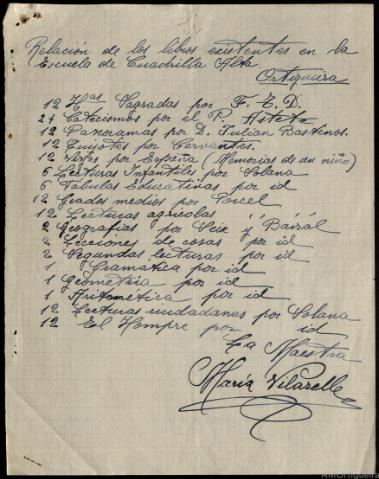 Relación de los libros existentes en la
Escuela de Cuadrilla Alta.
Ortigueira
12 Hªs Sagradas por F. T. D.
24 Catecismos por el P. Astete
12 Panoramas por D. Julian Bastinos.
12 Quijotes por Cervantes.
12 Viajes por España (Memorias de un niño)
6 Lecturas Infantiles por Solana
6 Fabulas Educativas por id
12 Grados medios por Porcel
12 Lecturas agricolas " "
2 Geografias por Seix y Barral
2 Lecciones de cosas por id
2 Segundas lecturas por id
1 Gramatica por id
1 Geometria por id
1 Aritmética por id
12 Lecturas ciudadanas por Solana
12 El Hombre por id
La Maestra
María Vilarelle
AMOrtigueira